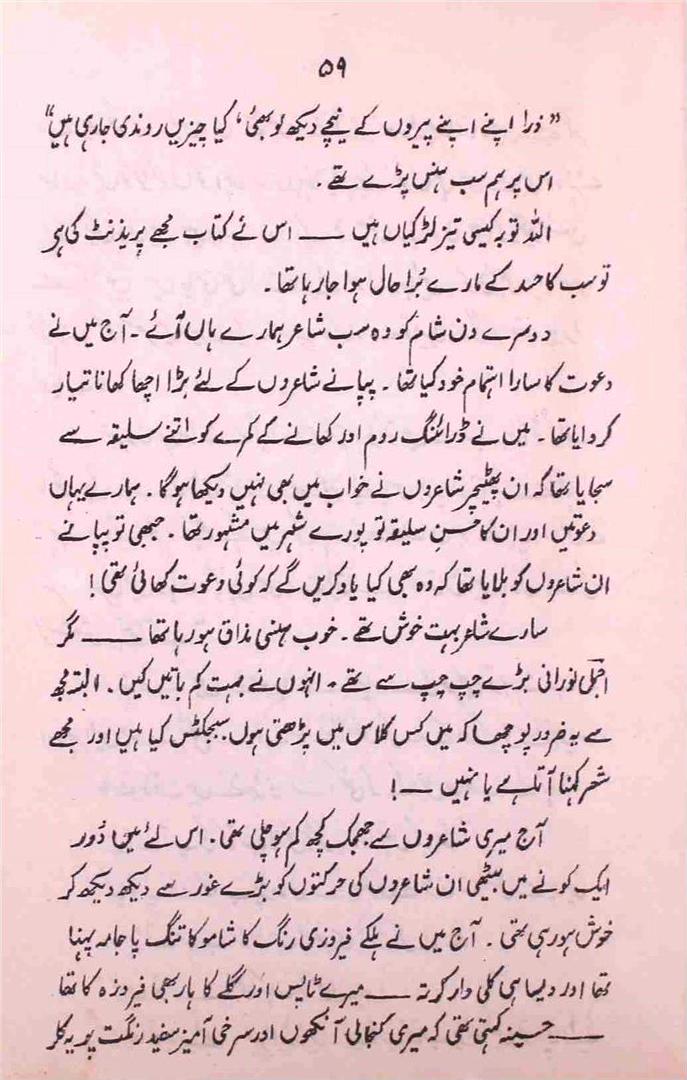 ۵۹
" ذرا اپنے اپنے پیروں کے نیچے دیکھ لو بھئی ' کیا چیزیں روندی جا رہی ہیں "
اس پر ہم سب ہنس پڑے تھے ۔
اللہ توبہ کیسی تیز لڑکیاں ہیں ــــ اس نے کتاب مجھے پریذنٹ کی ہی
تو سب کا حسد کے مارے بُرا حال ہوا جا رہا تھا ۔
دوسرے دن شام کو وہ سب شاعر ہمارے ہاں آئے ۔ آج میں نے
دعوت کا سارا اہتمام خود کیا تھا ۔ پپا نے شاعروں کے لئے بڑا اچھا کھانا تیار
کروایا تھا ۔ میں نے ڈرائنگ روم اور کھانے کے کمرے کو اتنے سلیقہ سے
سجایا تھا کہ ان پھٹیچر شاعروں نے خواب میں بھی نہیں دیکھا ہوگا ۔ ہمارے یہاں
دعوتیں اور ان کا حسنِ سلیقہ تو پورے شہر میں مشہور تھا ۔ جبھی تو پپا نے
ان شاعروں کو بلایا تھا کہ وہ بھی کیا یاد کریں گے کہ کوئی دعوت کھائی تھی !
سارے شاعر بہت خوش تھے ۔ خوب ہنسی مذاق ہو رہا تھا ــــ مگر
اجملی نورانی بڑے چپ چپ سے تھے ۔ انہوں نے بہت کم باتیں کیں ۔ البتہ مجھ
سے یہ ضرور پوچھا کہ میں کس کلاس میں پڑھتی ہوں ۔ سبجکٹس کیا ہیں اور مجھے
شعر کہنا آتا ہے یا نہیں ــــ !
آج میری شاعروں سے جھجک کچھ کم ہو چلی تھی ۔ اس لئے میں دُور
ایک کونے میں بیٹھی ان شاعروں کی حرکتوں کو بڑے غور سے دیکھ دیکھ کر
خوش ہو رہی تھی ۔ آج میں نے ہلکے فیروزی رنگ کا شامو کا تنگ پاجامہ پہنا
تھا اور ویسا ہی کلی دار کرتہ ــــ میرے ٹاپس اور گلے کا ہار بھی فیروزہ کا تھا
ــــ حسینہ کہتی تھی کہ میری کنجالی آنکھوں اور سرخی آمیز سفید رنگت پو یہ کلر